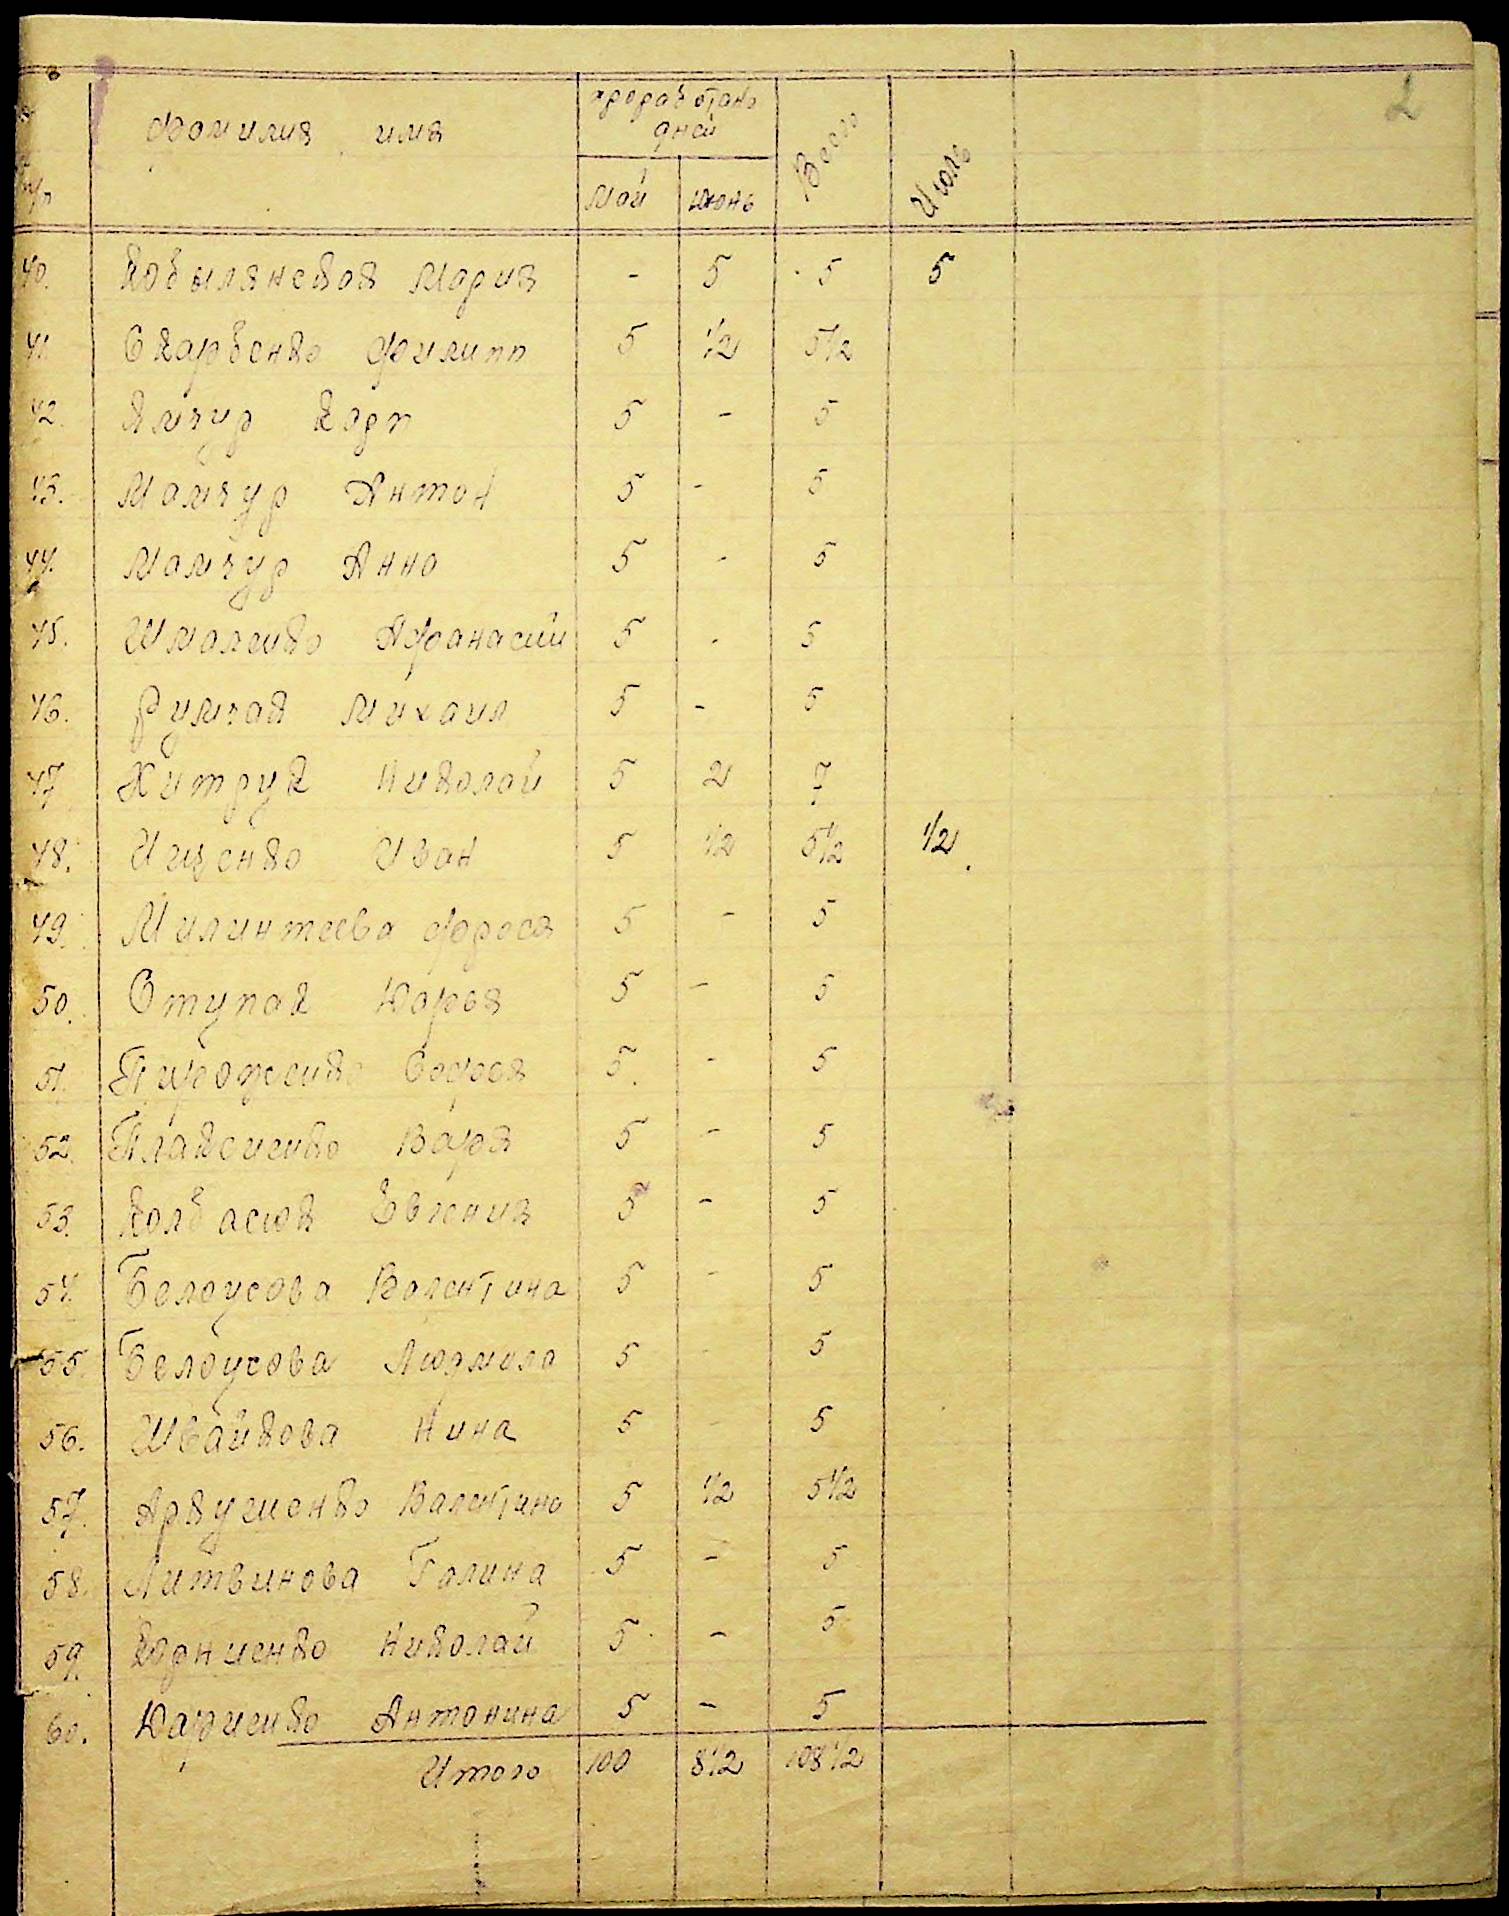 2
№ п/п фамилия имя проработано дней Всего Июль
май июнь
40. Кобылянская Мария - 5 5 5
41. Скарбенко Филипп 5 1/2 5 1/2
42. Ямчур Карп 5 - 5
43. Мамчур Антон 5 - 5
44. Мамчур Анна 5 - 5
45. Шмаленко Афанасий 5 - 5
46. Румчак Михаил 5 - 5
47 Хитрук Николай 5 2 7
48. Ищенко Иван 5 1/2 5 1/2 1/2
49. Милинтеева Фрося 5 - 5
50. Ступак Дарья 5 - 5
51. Пироженко 5 - 5
52. Плаксиенко Варя 5 - 5
53. Колбасюк Евгения 5 - 5
54. Белоусова Валентина 5 - 5
55. Белоусова Людмила 5 - 5
56. Швайкова Нина 5 5
57. Аркушенко Валентина 5 1/2 5 1/2
58. Литвинова Галина 5 - 5
59. Корниенко Николай 5 - 5
60. Антонина 5 - 5
Итого 100 8 1/2 108 1/2